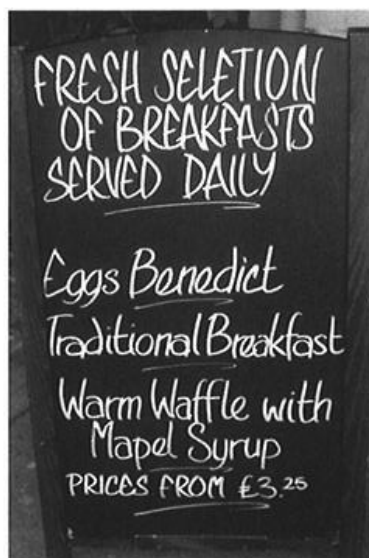 FRESH SELETION
OF BREAKFASTS
SERVED DAILY
Eggs Benedict
Traditional Breakfast
Warm Waffle with
Mapel Syrup
PRICES FROM £3.25